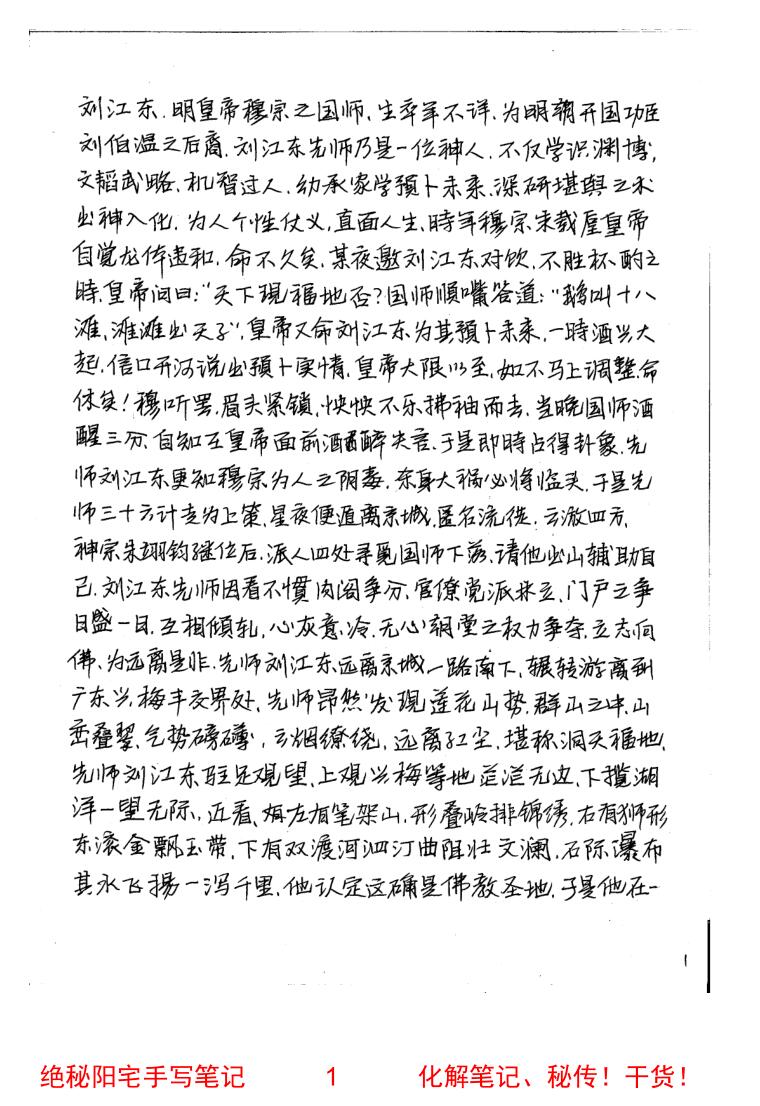 刘江东.明皇帝穆宗之国师.生卒年不详.为明朝开国功臣
刘伯温之后裔.刘江东先师乃是一位神人.不仅学识渊博,
文韬武略.机智过人.幼承家学預卜未来.深研堪舆之术
出神入化.为人个性仗义,直面人生.時年穆宗朱载垕皇帝
自觉龙体违和.命不久矣.某夜邀刘江东对饮.不胜杯酌之
時.皇帝问曰:“天下現福地否?国师顺嘴答道:“鹅叫十八
滩,滩滩出天子”.皇帝又命刘江东为其預卜未来.一時酒兴大
起.信口开河说出預卜实情.皇帝大限以至.如不马上调整.命
休矣!穆听罢.眉头紧锁.怏怏不乐拂袖而去.当晚国师酒
醒三分.自知在皇帝面前酒醉失言.于是即時占得卦象.先
师刘江东更知穆宗为人之阴毒.杀身大祸必将临头.于是先
师三十六计走为上策.星夜便遁离京城.匿名流徙.云游四方.
神宗朱翊钧继位后.派人四处寻觅国师下落.请他出山辅助自
己.刘江东先师因看不惯内阁争分.官僚党派林立.门户之争
日盛一日.互相倾轧,心灰意冷.无心朝堂之权力争夺.立志向
佛.为远离是非.先师刘江东远离京城一路南下.辗转游离到
广东兴梅丰交界处.先师昂然发现莲花山势.群山之中.山
峦叠翠.气势磅礴,云烟缭绕.远离红尘.堪称洞天福地.
先师刘江东驻足观望.上观兴梅等地茫茫无边.下揽湖
洋一望无际.近看.左有笔架山.形叠岭排锦绣.右有狮形
东滚金飘玉带.下有双渡河泗汀曲阻壮文澜.石际瀑布
其水飞揚一泻千里.他认定这确是佛教圣地.于是他在一
1
绝秘阳宅手写笔记 1 化解笔记、秘传！干货！